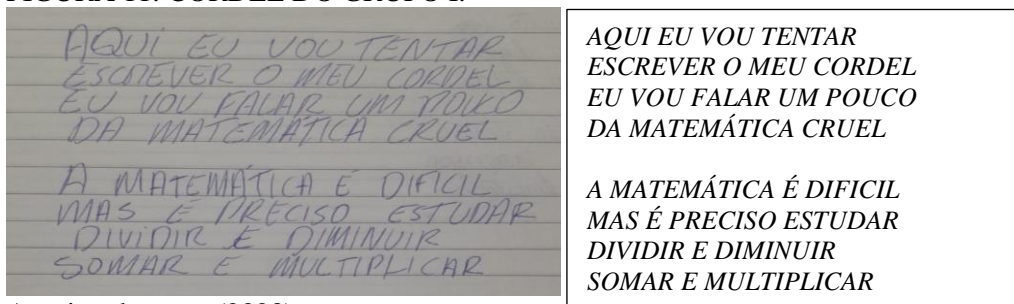 AQUI EU VOU TENTAR
ESCREVER O MEU CORDEL
EU VOU FALAR UM POUCO
DA MATEMÁTICA CRUEL
A MATEMÁTICA E DIFICIL
MAS E PRECISO ESTUDAR
DIVIDIR E DIMINUIR
SOMAR E MULTIPLICAR
AQUI EU VOU TENTAR
ESCREVER O MEU CORDEL
EU VOU FALAR UM POUCO
DA MATEMÁTICA CRUEL
A MATEMÁTICA É DIFICIL
MAS É PRECISO ESTUDAR
DIVIDIR E DIMINUIR
SOMAR E MULTIPLICAR